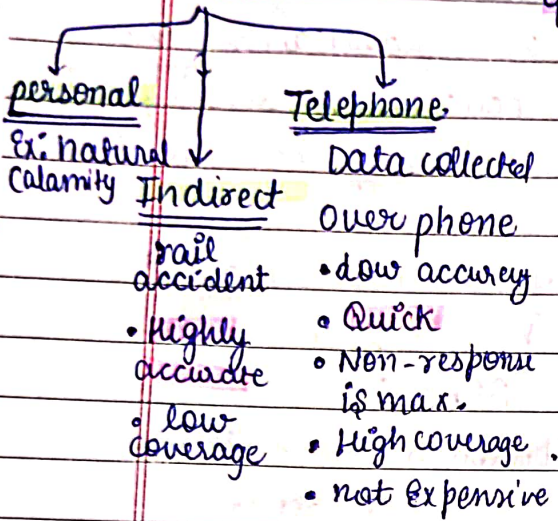 personal
Ex: natural
Calamity
Indirect
rail
accident
• Highly
accurate
• low
coverage
Telephone
Data collected
over phone
• Low accuracy
• Quick
• Non-response
is max.
• High coverage.
• not Expensive